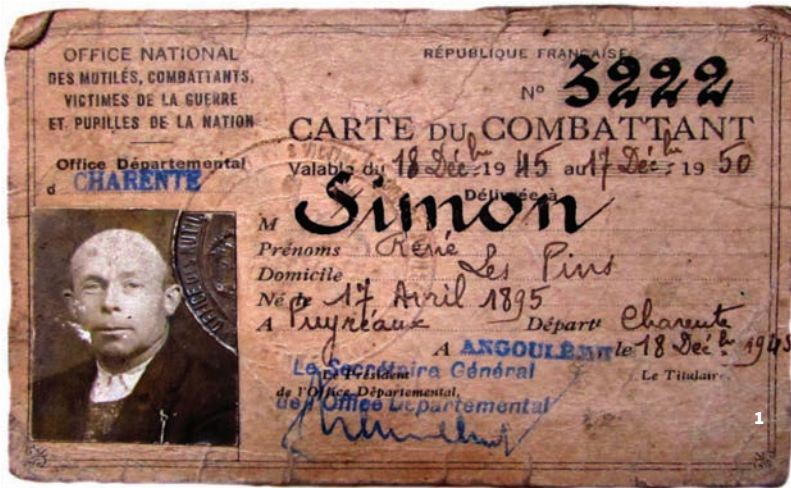 OFFICE NATIONAL
DES MUTILÉS, COMBATTANTS,
VICTIMES DE LA GUERRE
ET PUPILLES DE LA NATION
Office Départemental
d CHARENTE
RÉPUBLIQUE FRANÇAISE
N° 3222
CARTE DU COMBATTANT
Valable du 18 Déc.bre 1945 au 17 Déc.bre 1950
Délivrée à
M Simon
Prénoms René
Domicile Les Pins
Né le 17 Avril 1895
A Puyréaux Départt Charente
A ANGOULÊME le 18 Déc.bre 1945
Le Secrétaire Général
Le Président
de l'Office Départemental,
de l'Office Départemental
Le Titulaire,
1